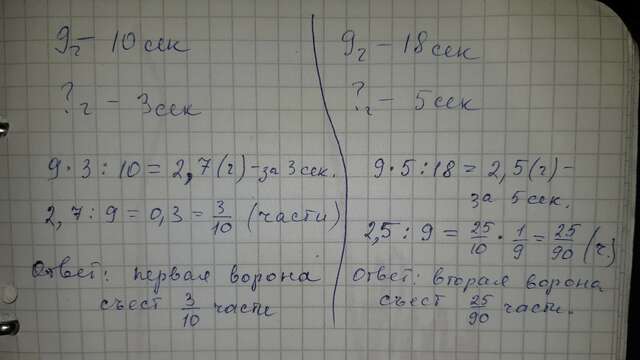 9г – 10 сек
?г – 3 сек
9 · 3 : 10 = 2,7 (г) – за 3 сек.
2,7 : 9 = 0,3 = 3/10 (части)
Ответ: первая ворона
съест 3/10 части
9г – 18 сек
?г – 5 сек
9 · 5 : 18 = 2,5 (г) –
за 5 сек.
2,5 : 9 = 25/10 · 1/9 = 25/90 (ч.)
Ответ: вторая ворона
съест 25/90 части.